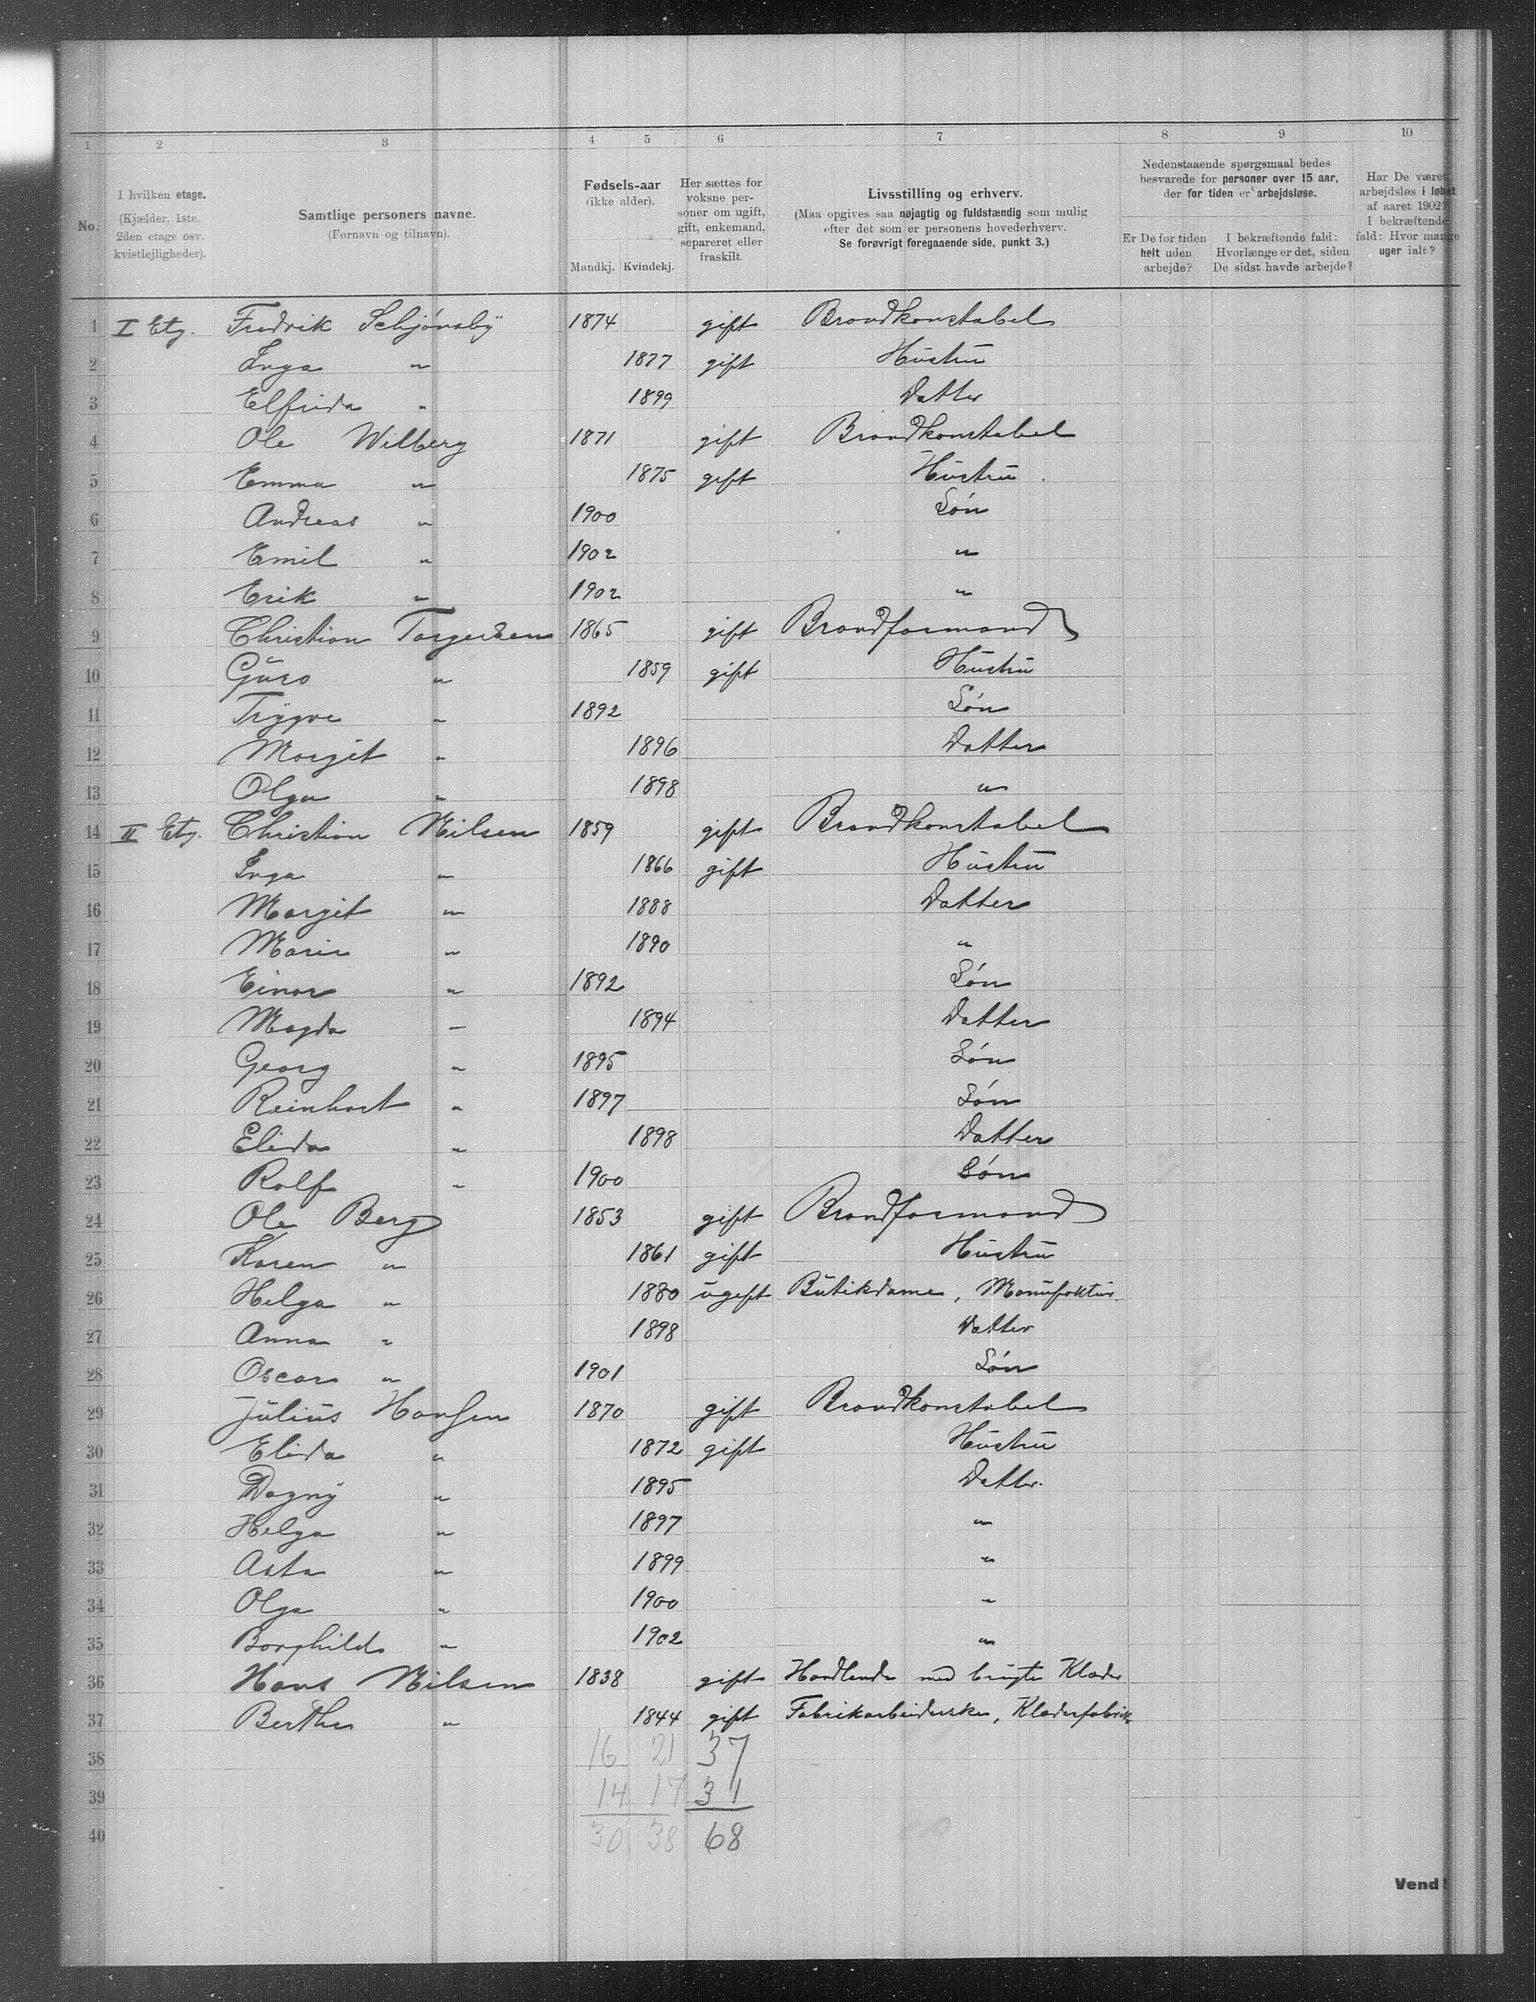 1 2 3 4 5 6 7 8 9 10
No.
I hvilken etage.
(Kjælder, 1ste.
2den etage osv.
kvistlejligheder).
Samtlige personers navne.
(Fornavn og tilnavn).
Fødsels-aar
(ikke alder).
Mandkj. Kvindekj.
Her sættes for
voksne per-
soner om ugift,
gift, enkemand,
separeret eller
fraskilt.
Livsstilling og erhverv.
(Maa opgives saa nøjagtig og fuldstændig som mulig
efter det som er personens hovederhverv.
Se forøvrigt foregaaende side, punkt 3.)
Nedenstaaende spørgsmaal bedes
besvarede for personer over 15 aar,
der for tiden er arbejdsløse.
Er De for tiden
helt uden
arbejde?
I bekræftende fald:
Hvorlænge er det, siden
De sidst havde arbejde?
Har De været
arbejdsløs i løbet
af aaret 1902?
I bekræftende
fald: Hvor mange
uger ialt?
1 I Etg. Fredrik Schjønsby 1874 gift Brandkonstabel
2 Inga " 1877 gift Hustru
3 Elfrida " 1899 Datter
4 Ole Wilberg 1871 gift Brandkonstabel
5 Emma " 1875 gift Hustru
6 Andreas " 1900 Søn
7 Emil " 1902 "
8 Erik " 1902 "
9 Christian Torgersen 1865 gift Brandformand
10 Guro " 1859 gift Hustru
11 Trygve " 1892 Søn
12 Margit " 1896 Datter
13 Olga " 1898 "
14 II Etg. Christian Nilsen 1859 gift Brandkonstabel
15 Inga " 1866 gift Hustru
16 Margit " 1888 Datter
17 Marie " 1890 "
18 Einar " 1892 Søn
19 Magda " 1894 Datter
20 Georg " 1895 Søn
21 Reinhart " 1897 Søn
22 Elida " 1898 Datter
23 Rolf " 1900 Søn
24 Ole Berg 1853 gift Brandformand
25 Karen " 1861 gift Hustru
26 Helga " 1880 ugift Butikdame, Manufaktur.
27 Anna " 1898 Datter
28 Oscar " 1901 Søn
29 Julius Hansen 1870 gift Brandkonstabel
30 Elida " 1872 gift Hustru
31 Dagny " 1895 Datter.
32 Helga " 1897 "
33 Asta " 1899 "
34 Olga " 1900 "
35 Borghild " 1902 "
36 Hans Nilsen 1838 gift Handlende med brugte Klæder
37 Berthe " 1844 gift Fabrikarbeiderske, Klæderfabrik
38 16 21 37
39 14 17 31
40 30 38 68
Vend!